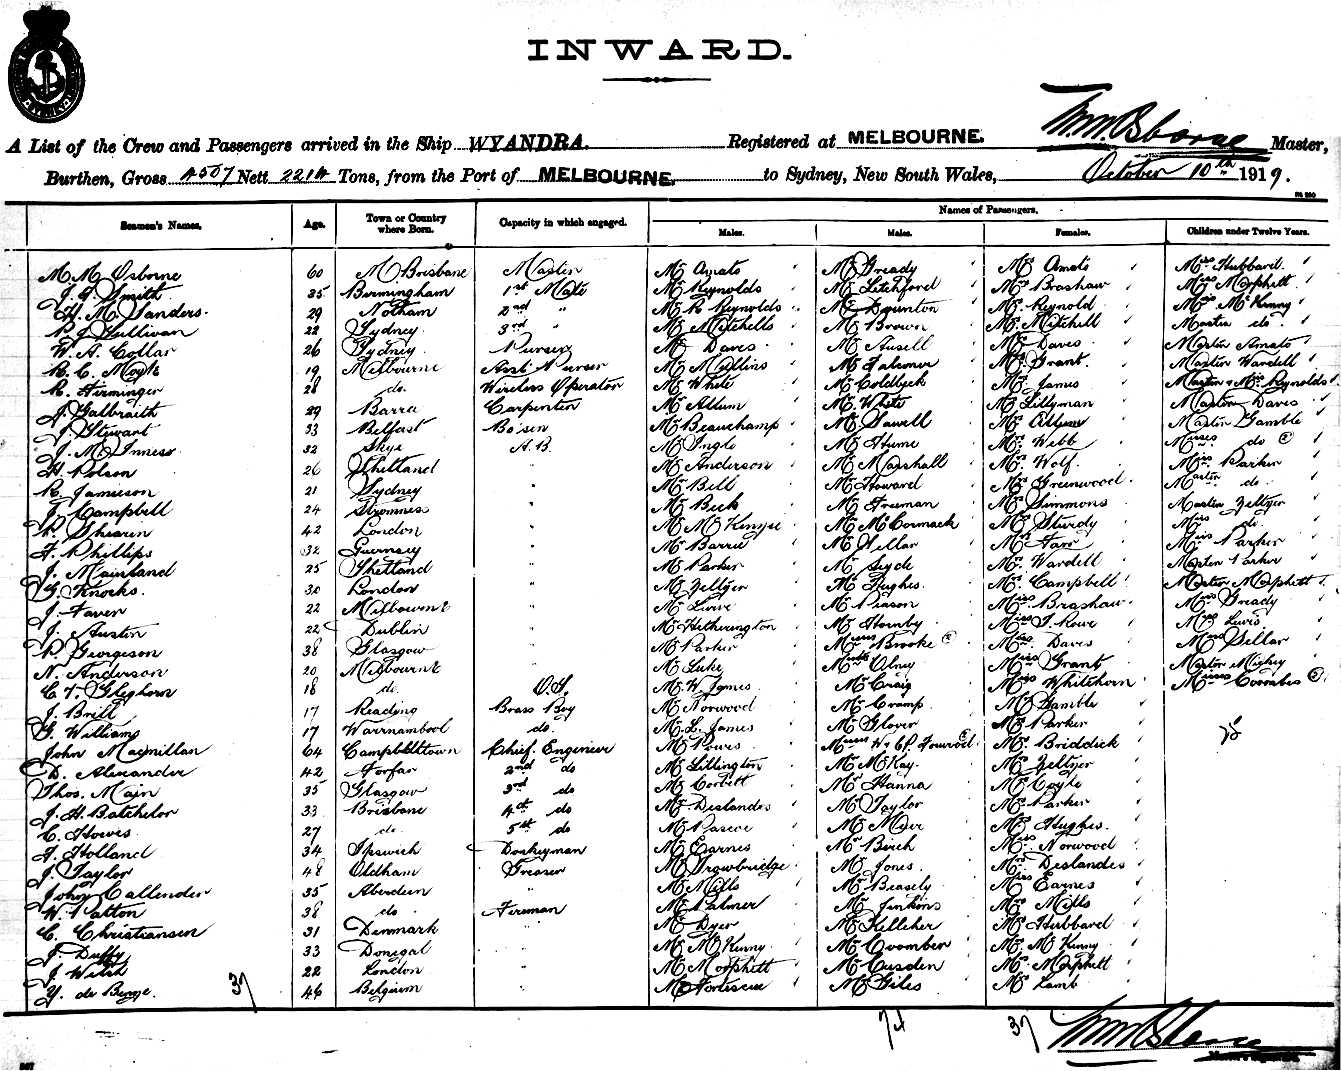 INWARD.
A List of the Crew and Passengers arrived in the Ship WYANDRA. Registered at MELBOURNE. Wm. M. Osborne Master,
Burthen, Gross 4507 Nett 2214 Tons, from the Port of MELBOURNE. to Sydney, New South Wales, October 10th 1919.
Names of Passengers,
Seamen's Names, Age. Town or Country where Born. Capacity in which engaged. Males. Males. Females. Children under Twelve Years.
M. M. Osborne 60 Brisbane Master Mr Amato Mr Gready Mrs Amato Miss Hubbard
Smith 35 Birmingham 1st Mate Mr Reynolds Mr Litchford Mrs Brashaw Miss Morphett
H. M. Sanders 29 Notham 2nd " Mr R Reynolds Mr Dounton Mrs Reynold Miss McKenny
Sullivan 22 Sydney 3rd " Mr Mitchells Mr Brown Mrs Mitchell Master do
W. A. Collar 26 Sydney Purser Mr Daves Mr Ansell Mrs Daves Master Amato
R. C. Moyle 19 Melbourne Asst Purser Mr Mullins Mr Falconer Mrs Grant Master Wardell
R. Firminger 28 do. Wireless Operator Mr White Mr Coldbeck Mrs James Reynolds
J. Galbraith 29 Barra Carpenter Mr Allum Mr White Mrs Lillyman Master Daves
J. Stewart 33 Belfast Bo'sen Mr Beauchamp Mr Sewell Mrs Allum Master Gamble
J. McInness 32 Skye A.B. Mr Ingle Mr Hume Mrs Webb Misses do 2
H. Polson 26 Shetland " Mr Anderson Mr Marshall Mrs Wolf. Miss Parker
R. Jamieson 21 Sydney " Mr Bell Mr Howard Mrs Greenwood Master do.
J. Campbell 24 Stromness " Mr Beck Mr Freeman Mrs Simmons Master Zeltzer
P. Shearen 42 London " Mr McKenzie Mr McCormack Mrs Sturdy Miss do.
F. Phillips 32 Guernsey " Mr Barrie Mr Sellar Mrs Farr Miss Parker
J. Mainland 25 Shetland " Mr Parker Mr Syde Mrs Wardell Master Parker
G. Knocks. 30 London " Mr Zeltzer Mr Hughes. Mrs Campbell Master Morphett
J. Taver 22 Melbourne " Mr Lurve Mr Peason Miss Brashaw Miss Gready
J. Austin 22 Dublin " Mr Hetherington Mr Hornby Miss J. Rowe Miss Lewis
P. Georgeson 38 Glasgow " Mr Parker Brooke 2 Miss Daves Miss Sellar
N. Anderson 20 Melbourne " Mr Luke Olney Miss Grant Master
C. T. Gleghorn 18 do. O.S. Mr W. James Mr Craig Miss Whitehorn Misses Coombes 2
J. Brill 17 Reading Brass Boy Mr Norwood Mr Cramp Mrs Gamble
G. Williams 17 Warrnambool do. Mr L. James Mr Glover Mrs Parker 28
John Macmillan 64 Campbelltown Chief Engineer Mr Powes 2 Mrs Briddick
D. Alexander 42 Forfar 2nd do Mr Lillington Mr McKay Mrs Zeltzer
Thos. Main 35 Glasgow 3rd do Mr Corbett Mr Hanna Mrs Coyle
J. H. Batchelor 33 Brisbane 4th do Mr Deslandes Mr Taylor Mrs Parker
C. Howes 27 do. 5th do Mr Pascoe Mr Myer Mrs Hughes.
F. Holland 34 Ipswich Donkeyman Mr Earnes Mr Birch Miss Norwood
J. Taylor 48 Oldham Greaser Mr Trowbridge Mr Jones Mrs Deslandes
John Callender 35 Aberdeen " Mr Mills Mr Beasely Mrs Earnes
W. Patton 38 do. Fireman Mr Palmer Mr Jenkins Mrs Mills
C. Christiansen 31 Denmark " Mr Dyer Mr Kelleher Mrs Hubbard
J. Duffy 33 Donegal " Mr McKenny Mr Coomber Mrs McKenny
J. Wilsh 22 London " Mr Morphett Mr Cusden Mrs Morphett
Y. de Beuge. 37 46 Belgium " Mr Fortiscue Mr Giles Mrs Lamb
74 37